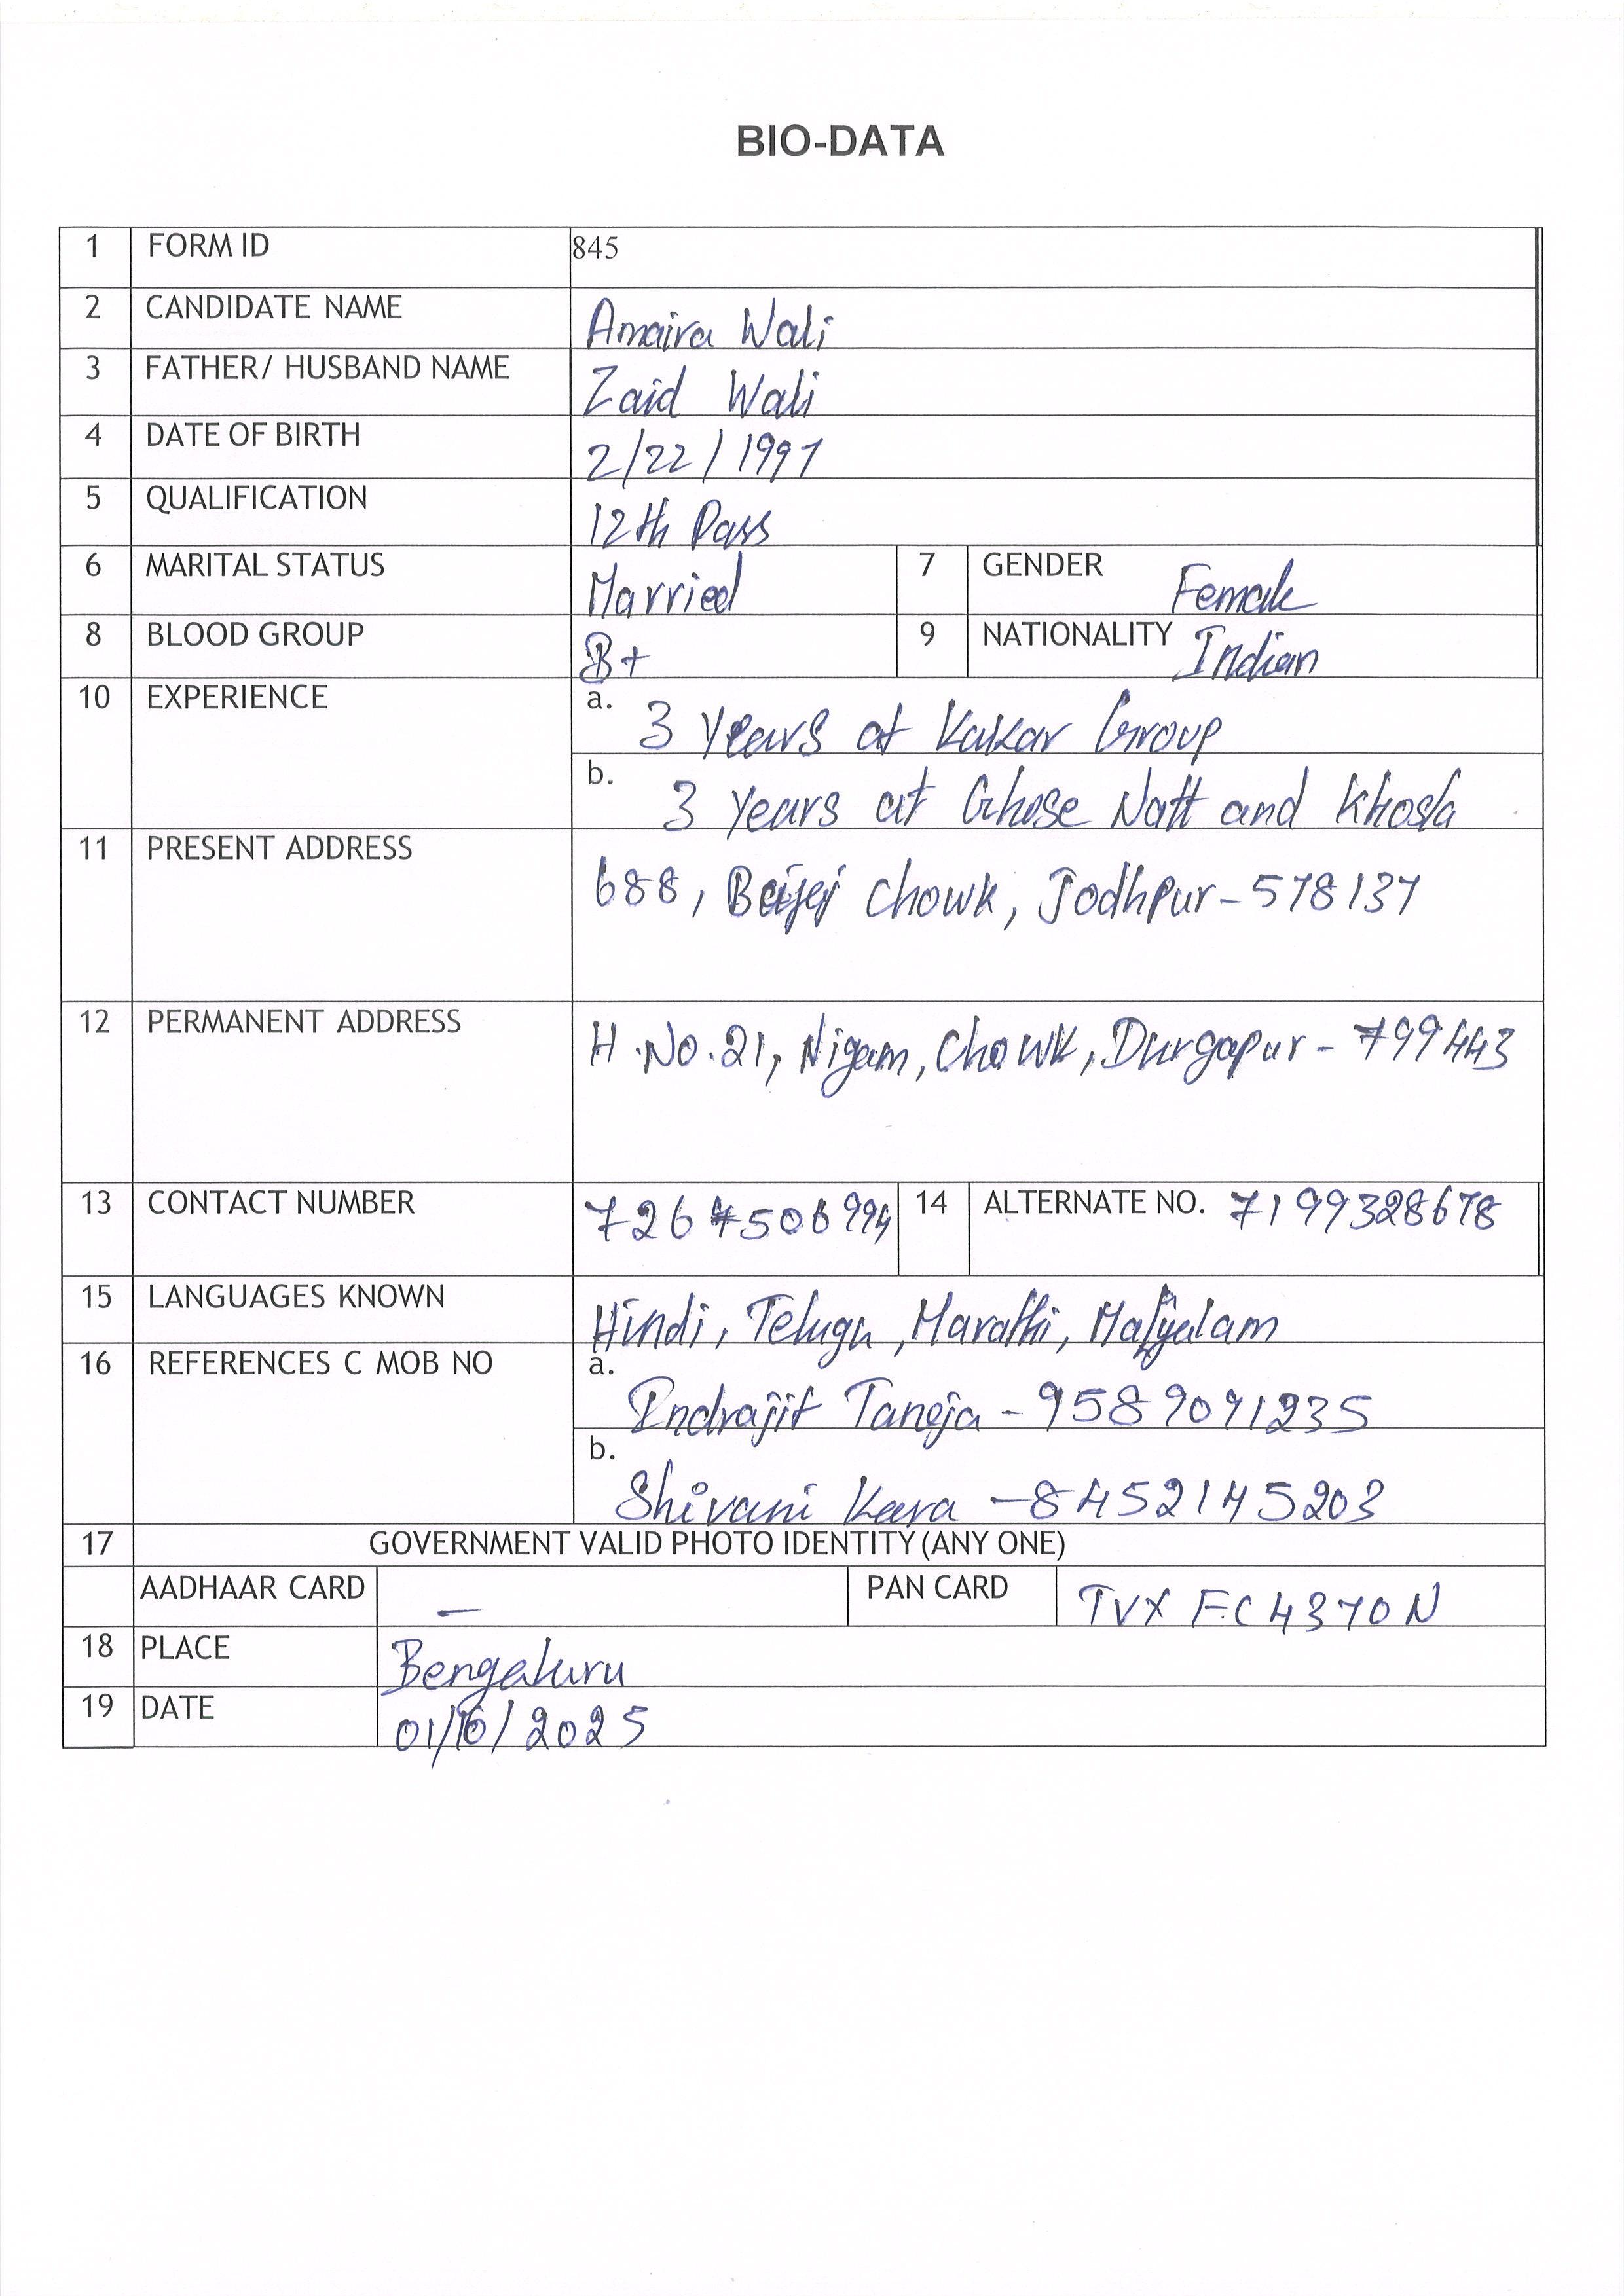 BIO-DATA
1 FORM ID 845
2 CANDIDATE NAME Amaira Wali
3 FATHER/ HUSBAND NAME Zaid Wali
4 DATE OF BIRTH 2/22/1997
5 QUALIFICATION 12th Pass
6 MARITAL STATUS Married 7 GENDER Female
8 BLOOD GROUP B+ 9 NATIONALITY Indian
10 EXPERIENCE a. 3 Years at Kakar Group
b. 3 Years at Ghose Natt and Khosla
11 PRESENT ADDRESS 688, Chowk, Jodhpur-578137
12 PERMANENT ADDRESS H.No.21, Nigam, Chowk, Durgapur-799443
13 CONTACT NUMBER 7267506994 14 ALTERNATE NO. 7199328678
15 LANGUAGES KNOWN Hindi, Telugu, Marathi, Malyalam
16 REFERENCES C MOB NO a. Indrajit Taneja - 9589091235
b. Shivani Kara - 8452145203
17 GOVERNMENT VALID PHOTO IDENTITY (ANY ONE)
AADHAAR CARD — PAN CARD TVXFC4370N
18 PLACE Bengaluru
19 DATE 01/16/2025